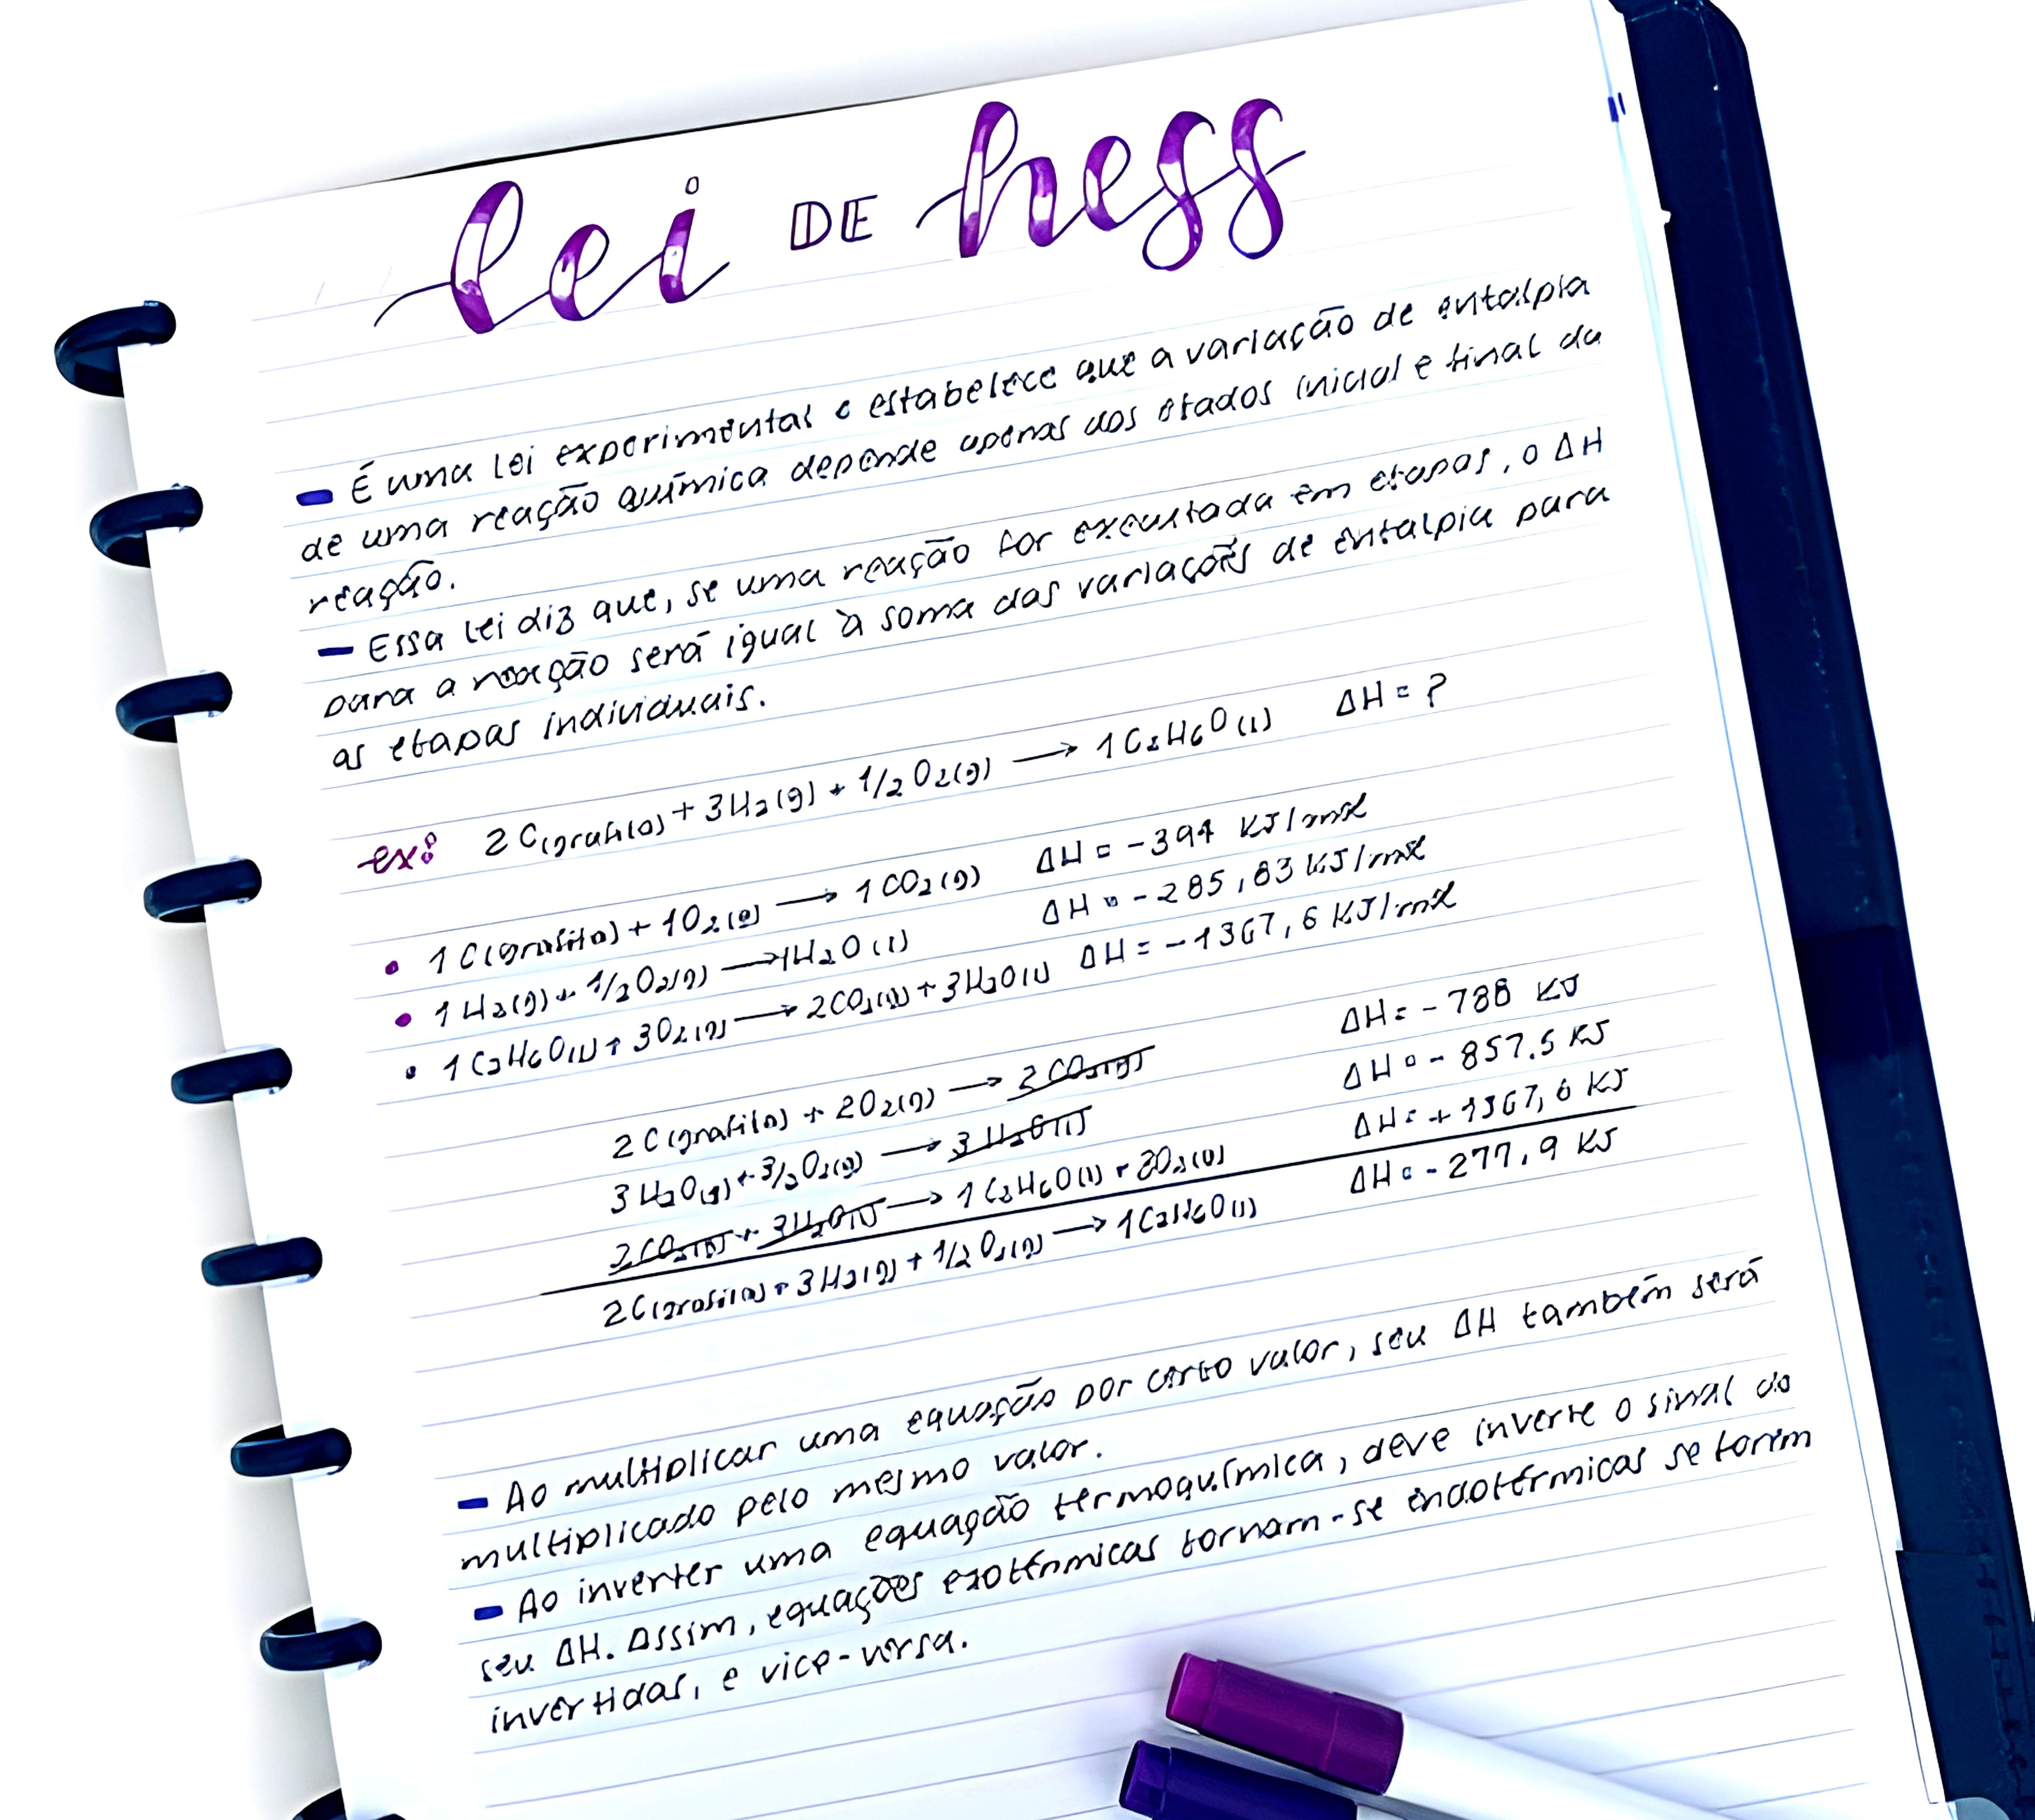 lei DE hess
- É uma lei experimental e estabelece que a variação de entalpia
de uma reação química depende apenas dos etados inicial e final da
reação.
- Essa lei diz que, se uma reação for executada em etapas, o ΔH
para a reação será igual à soma das variações de entalpia para
as etapas individuais.
ex: 2 C(grafito) + 3H₂(g) + 1/2 O₂(g) → 1 C₂H₆O(l) ΔH = ?
• 1 C(grafito) + 1O₂(g) → 1 CO₂(g) ΔH = -394 KJ/mol
• 1 H₂(g) + 1/2 O₂(g) → 1H₂O(l) ΔH = -285,83 KJ/mol
• 1 C₂H₆O(l) + 3O₂(g) → 2CO₂(g) + 3H₂O(l) ΔH = -1367,6 KJ/mol
2 C(grafito) + 2O₂(g) → 2 CO₂(g) ΔH = -788 KJ
3 H₂O(g) + 3/2 O₂(g) → 3 H₂O(l) ΔH = -857.5 KJ
2CO₂(g) + 3H₂O(l) → 1 C₂H₆O(l) + 3O₂(g) ΔH = +1367,6 KJ
2C(grafito) + 3H₂(g) + 1/2 O₂(g) → 1C₂H₆O(l) ΔH = -277,9 KJ
- Ao multiplicar uma equação por certo valor, seu ΔH também será
multiplicado pelo mesmo valor.
- Ao inverter uma equação termoquímica, deve inverte o sinal do
seu ΔH. Assim, equações exotérmicas tornam-se endotérmicas se forem
invertidas, e vice-versa.